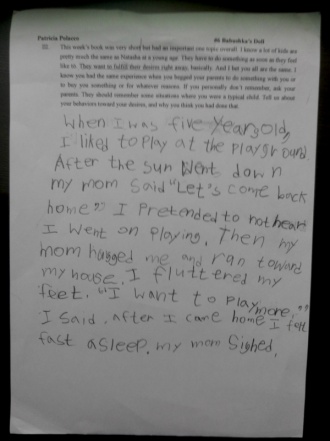 Patricia Polacco #6 Babushka's Doll
III. This week's book was very short but had an important one topic overall. I know a lot of kids are
pretty much the same as Natasha at a young age. They have to do something as soon as they feel
like to. They want to fulfill their desires right away, basically. And I bet you all are the same. I
know you had the same experience when you begged your parents to do something with you or
to buy you something or for whatever reasons. If you personally don't remember, ask your
parents. They should remember some situations where you were a typical child. Tell us about
your behaviors toward your desires, and why you think you had done that.
When I was five years old,
I liked to play at the playground.
After the sun went down
my mom said "Let's come back
home" I pretended to not hear
I went on playing. Then my
mom hugged me and ran toward
my house. I fluttered my
feet. "I want to play more."
I said. after I came home I fell
fast asleep. my mom sighed.